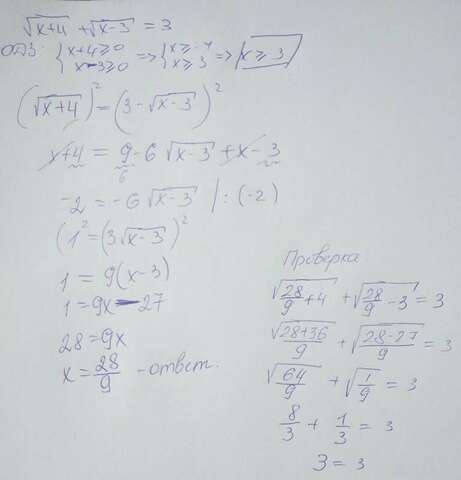 √(x+4) + √(x-3) = 3
ОДЗ: { x+4 ≥ 0 => { x ≥ -4 => x ≥ 3
x-3 ≥ 0 x ≥ 3
(√(x+4))² = (3 - √(x-3))²
x+4 = 9 - 6√(x-3) + x - 3
6
-2 = -6√(x-3) | : (-2)
(1² = (3√(x-3))²
1 = 9(x-3)
1 = 9x - 27
28 = 9x
x = 28/9 - ответ.
Проверка
√(28/9 + 4) + √(28/9 - 3) = 3
√((28+36)/9) + √((28-27)/9) = 3
√(64/9) + √(1/9) = 3
8/3 + 1/3 = 3
3 = 3